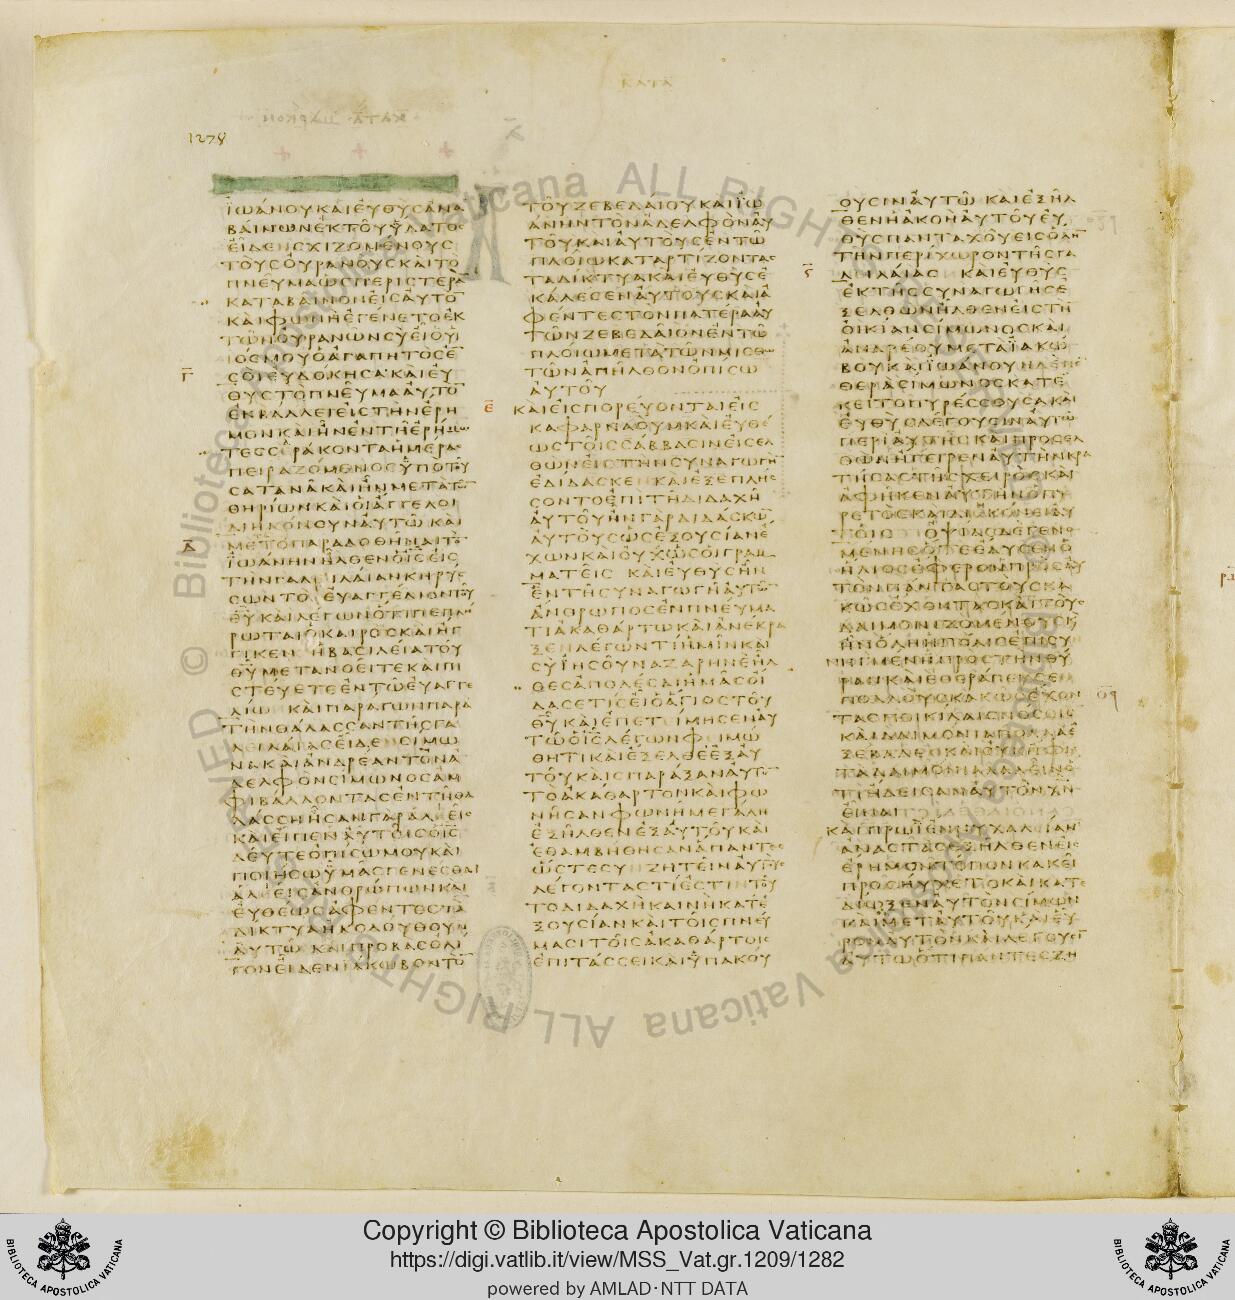 ΚΑΤΑ
1278
ΙΩΑΝΟΥΚΑΙΕΥΘΥΣΑΝΑ
ΒΑΙΝΩΝΕΚΤΟΥΥΔΑΤΟΣ
ΕΙΔΕΝΣΧΙΖΟΜΕΝΟΥΣ
ΤΟΥΣΟΥΡΑΝΟΥΣΚΑΙΤΟ
ΠΝΕΥΜΑΩΣΠΕΡΙΣΤΕΡΑ
ΚΑΤΑΒΑΙΝΟΝΕΙΣΑΥΤΟ
ΚΑΙΦΩΝΗΕΓΕΝΕΤΟΕΚ
ΤΩΝΟΥΡΑΝΩΝΣΥΕΙΟΥΙ
ΟΣΜΟΥΟΑΓΑΠΗΤΟΣΕ
Γ
ΣΟΙΕΥΔΟΚΗΣΑΚΑΙΕΥ
ΘΥΣΤΟΠΝΕΥΜΑΑΥΤΟ
ΕΚΒΑΛΛΕΙΕΙΣΤΗΝΕΡΗ
ΜΟΝΚΑΙΗΝΕΝΤΗΕΡΗΜΩ
ΤΕΣΣΕΡΑΚΟΝΤΑΗΜΕΡΑΣ
ΠΕΙΡΑΖΟΜΕΝΟΣΥΠΟΤΟΥ
ΣΑΤΑΝΑΚΑΙΗΝΜΕΤΑΤΩ
ΘΗΡΙΩΝΚΑΙΟΙΑΓΓΕΛΟΙ
ΔΙΗΚΟΝΟΥΝΑΥΤΩ ΚΑΙ
Δ
ΜΕΤΑΤΟΠΑΡΑΔΟΘΗΝΑΙΤΟ
ΙΩΑΝΗΝΗΛΘΕΝΟΙΣΕΙΣ
ΤΗΝΓΑΛΕΙΛΑΙΑΝΚΗΡΥΣ
ΣΩΝΤΟΕΥΑΓΓΕΛΙΟΝΤΟΥ
ΘΥΚΑΙΛΕΓΩΝΟΤΙΠΕΠΛΗ
ΡΩΤΑΙΟΚΑΙΡΟΣΚΑΙΗΓ
ΓΙΚΕΝ ΗΒΑΣΙΛΕΙΑΤΟΥ
ΘΥΜΕΤΑΝΟΕΙΤΕΚΑΙΠΙ
ΣΤΕΥΕΤΕΕΝΤΩΕΥΑΓΓΕ
ΛΙΩ ΚΑΙΠΑΡΑΓΩΝΠΑΡΑ
ΤΗΝΘΑΛΑΣΣΑΝΤΗΣΓΑ
ΛΕΙΛΑΙΑΣΕΙΔΕΝΣΙΜΩ
ΝΑΚΑΙΑΝΔΡΕΑΝΤΟΝΑ
ΔΕΛΦΟΝΣΙΜΩΝΟΣΑΜ
ΦΙΒΑΛΛΟΝΤΑΣΕΝΤΗΘΑ
ΛΑΣΣΗΗΣΑΝΓΑΡΑΛΕΕΙΣ
ΚΑΙΕΙΠΕΝΑΥΤΟΙΣΟΙΣ
ΔΕΥΤΕΟΠΙΣΩΜΟΥΚΑΙ
ΠΟΙΗΣΩΥΜΑΣΓΕΝΕΣΘΑΙ
ΑΛΕΕΙΣΑΝΘΡΩΠΩΝΚΑΙ
ΕΥΘΕΩΣΑΦΕΝΤΕΣΤΑ
ΔΙΚΤΥΑΗΚΟΛΟΥΘΟΥΝ
ΑΥΤΩ ΚΑΙΠΡΟΒΑΣΟΛΙ
ΓΟΝΕΙΔΕΝΙΑΚΩΒΟΝΤΟ
ΤΟΥΖΕΒΕΔΑΙΟΥΚΑΙΙΩ
ΑΝΗΝΤΟΝΑΔΕΛΦΟΝΑΥ
ΤΟΥΚΑΙΑΥΤΟΥΣΕΝΤΩ
ΠΛΟΙΩΚΑΤΑΡΤΙΖΟΝΤΑΣ
ΤΑΔΙΚΤΥΑΚΑΙΕΥΘΥΣΕ
ΚΑΛΕΣΕΝΑΥΤΟΥΣΚΑΙΑ
ΦΕΝΤΕΣΤΟΝΠΑΤΕΡΑΑΥ
ΤΩΝΖΕΒΕΔΑΙΟΝΕΝΤΩ
ΠΛΟΙΩΜΕΤΑΤΩΝΜΙΣΘΩ
ΤΩΝΑΠΗΛΘΟΝΟΠΙΣΩ
ΑΥΤΟΥ
Ε
ΚΑΙΕΙΣΠΟΡΕΥΟΝΤΑΙΕΙΣ
ΚΑΦΑΡΝΑΟΥΜΚΑΙΕΥΘΕ
ΩΣΤΟΙΣΣΑΒΒΑΣΙΝΕΙΣΕΛ
ΘΩΝΕΙΣΤΗΝΣΥΝΑΓΩΓΗ
ΕΔΙΔΑΣΚΕΝΚΑΙΕΞΕΠΛΗΣ
ΣΟΝΤΟΕΠΙΤΗΔΙΔΑΧΗ
ΑΥΤΟΥΗΝΓΑΡΔΙΔΑΣΚΩ
ΑΥΤΟΥΣΩΣΕΞΟΥΣΙΑΝΕ
ΧΩΝΚΑΙΟΥΧΩΣΟΙΓΡΑΜ
ΜΑΤΕΙΣ ΚΑΙΕΥΘΥΣΗΝ
ΕΝΤΗΣΥΝΑΓΩΓΗΑΥΤΩ
ΑΝΘΡΩΠΟΣΕΝΠΝΕΥΜΑ
ΤΙΑΚΑΘΑΡΤΩΚΑΙΑΝΕΚΡΑ
ΞΕΝΛΕΓΩΝΤΙΗΜΙΝΚΑΙ
ΣΥΙΗΣΟΥΝΑΖΑΡΗΝΕΗΛ
ΘΕΣΑΠΟΛΕΣΑΙΗΜΑΣΟΙ
ΔΑΣΕΤΙΣΕΙΟΑΓΙΟΣΤΟΥ
ΘΥΚΑΙΕΠΕΤΕΙΜΗΣΕΝΑΥ
ΤΩΟΙΣΛΕΓΩΝΦΕΙΜΩ
ΘΗΤΙΚΑΙΕΞΕΛΘΕΕΞΑΥ
ΤΟΥΚΑΙΣΠΑΡΑΞΑΝΑΥΤΟ
ΤΟΑΚΑΘΑΡΤΟΝΚΑΙΦΩ
ΝΗΣΑΝΦΩΝΗΜΕΓΑΛΗ
ΕΞΗΛΘΕΝΕΞΑΥΤΟΥΚΑΙ
ΕΘΑΜΒΗΘΗΣΑΝΑΠΑΝΤΕΣ
ΩΣΤΕΣΥΝΖΗΤΕΙΝΑΥΤΟΥΣ
ΛΕΓΟΝΤΑΣΤΙΕΣΤΙΝΤΟΥ
ΤΟΔΙΔΑΧΗΚΑΙΝΗΚΑΤΕ
ΞΟΥΣΙΑΝΚΑΙΤΟΙΣΠΝΕΥ
ΜΑΣΙΤΟΙΣΑΚΑΘΑΡΤΟΙΣ
ΕΠΙΤΑΣΣΕΙΚΑΙΥΠΑΚΟΥ
ΟΥΣΙΝΑΥΤΩ ΚΑΙΕΞΗΛ
ΘΕΝΗΑΚΟΗΑΥΤΟΥΕΥ
ΘΥΣΠΑΝΤΑΧΟΥΕΙΣΟΛΗΝ
ΤΗΝΠΕΡΙΧΩΡΟΝΤΗΣΓΑ
ΛΕΙΛΑΙΑΣ ΚΑΙΕΥΘΥΣ
ΕΚΤΗΣΣΥΝΑΓΩΓΗΣΕ
ΞΕΛΘΩΝΗΛΘΕΝΕΙΣΤΗ
ΟΙΚΙΑΝΣΙΜΩΝΟΣΚΑΙ
ΑΝΔΡΕΟΥΜΕΤΑΙΑΚΩ
ΒΟΥΚΑΙΙΩΑΝΟΥΗΔΕΠΕ
ΘΕΡΑΣΙΜΩΝΟΣΚΑΤΕ
ΚΕΙΤΟΠΥΡΕΣΣΟΥΣΑΚΑΙ
ΕΥΘΥΣΛΕΓΟΥΣΙΝΑΥΤΩ
ΠΕΡΙΑΥΤΗΣΚΑΙΠΡΟΣΕΛ
ΘΩΝΗΓΕΙΡΕΝΑΥΤΗΝΚΡΑ
ΤΗΣΑΣΤΗΣΧΕΙΡΟΣΚΑΙ
ΑΦΗΚΕΝΑΥΤΗΝΟΠΥ
ΡΕΤΟΣΚΑΙΔΙΗΚΟΝΕΙΑΥ
ΤΟΙΣ ΟΨΙΑΣΔΕΓΕΝΟ
ΜΕΝΗΣΟΤΕΕΔΥΣΕΝΟ
ΗΛΙΟΣΕΦΕΡΟΝΠΡΟΣΑΥ
ΤΟΝΠΑΝΤΑΣΤΟΥΣΚΑ
ΚΩΣΕΧΟΝΤΑΣΚΑΙΤΟΥΣ
ΔΑΙΜΟΝΙΖΟΜΕΝΟΥΣΚ
ΗΝΟΛΗΗΠΟΛΙΣΕΠΙΣΥ
ΝΗΓΜΕΝΗΠΡΟΣΤΗΝΘΥ
ΡΑΝΚΑΙΕΘΕΡΑΠΕΥΣΕΝ
ΠΟΛΛΟΥΣΚΑΚΩΣΕΧΟΝ
ΤΑΣΠΟΙΚΙΛΑΙΣΝΟΣΟΙΣ
ΚΑΙΔΑΙΜΟΝΙΑΠΟΛΛΑΕ
ΞΕΒΑΛΕΝΚΑΙΟΥΚΗΦΙΕ
ΤΑΔΑΙΜΟΝΙΑΛΑΛΕΙΝΟ
ΤΙΗΔΕΙΣΑΝΑΥΤΟΝΧΝ
ΕΙΝΑΙ
ΚΑΙΠΡΩΙΕΝΝΥΧΑΛΕΙΑΝ
ΑΝΑΣΤΑΣΕΞΗΛΘΕΝΕΙΣ
ΕΡΗΜΟΝΤΟΠΟΝΚΑΚΕΙ
ΠΡΟΣΗΥΧΕΤΟΚΑΙΚΑΤΕ
ΔΙΩΞΕΝΑΥΤΟΝΣΙΜΩΝ
ΚΑΙΟΙΜΕΤΑΥΤΟΥΚΑΙΕΥ
ΡΟΝΑΥΤΟΝΚΑΙΛΕΓΟΥΣΙ
ΑΥΤΩΟΤΙΠΑΝΤΕΣΖΗ
Copyright © Biblioteca Apostolica Vaticana
https://digi.vatlib.it/view/MSS_Vat.gr.1209/1282
powered by AMLAD·NTT DATA
BIBLIOTECA APOSTOLICA VATICANA
BIBLIOTECA APOSTOLICA VATICANA